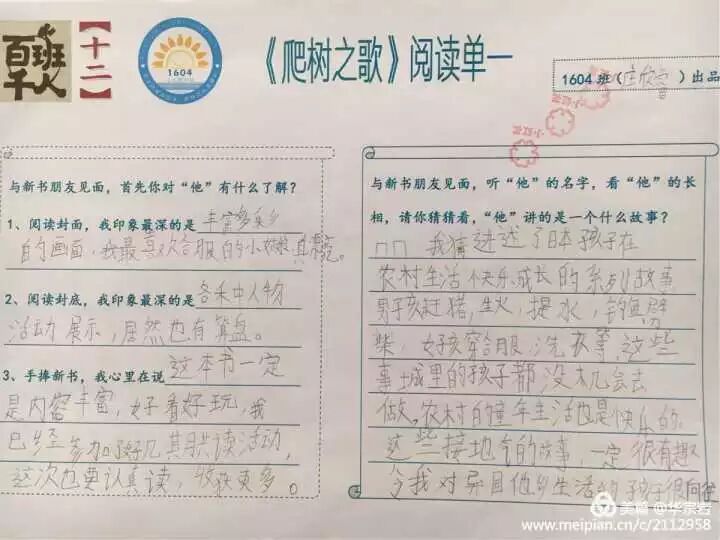 百班千人
【十二】
1604
《爬树之歌》阅读单一
1604班（庄欣雪）出品
与新书朋友见面，首先你对“他”有什么了解？
1、阅读封面，我印象最深的是丰富多采
的画面，我最喜欢合服的小姑娘真漂亮。
2、阅读封底，我印象最深的是各禾中人物
活动展示，居然也有算盘。
3、手捧新书，我心里在说这本书一定
是内容丰富，好看好玩，我
已经参加了好几其月共读活动，
这次也要认真读，收获更多。
与新书朋友见面，听“他”的名字，看“他”的长
相，请你猜猜看，“他”讲的是一个什么故事？
我猜讲述了日本孩子在
农村生活快乐成长的系列故事
男孩赶猪，生火，提水，钓鱼，劈
柴，女孩穿合服，洗衣等，这些
事城里的孩子都没机会去
做。农村的童年生活也是快乐的。
这些接地气的故事，一定很有趣
令我对异国他乡生活的孩子很向往
美篇@华宗若
www.meipian.cn/c/2112958